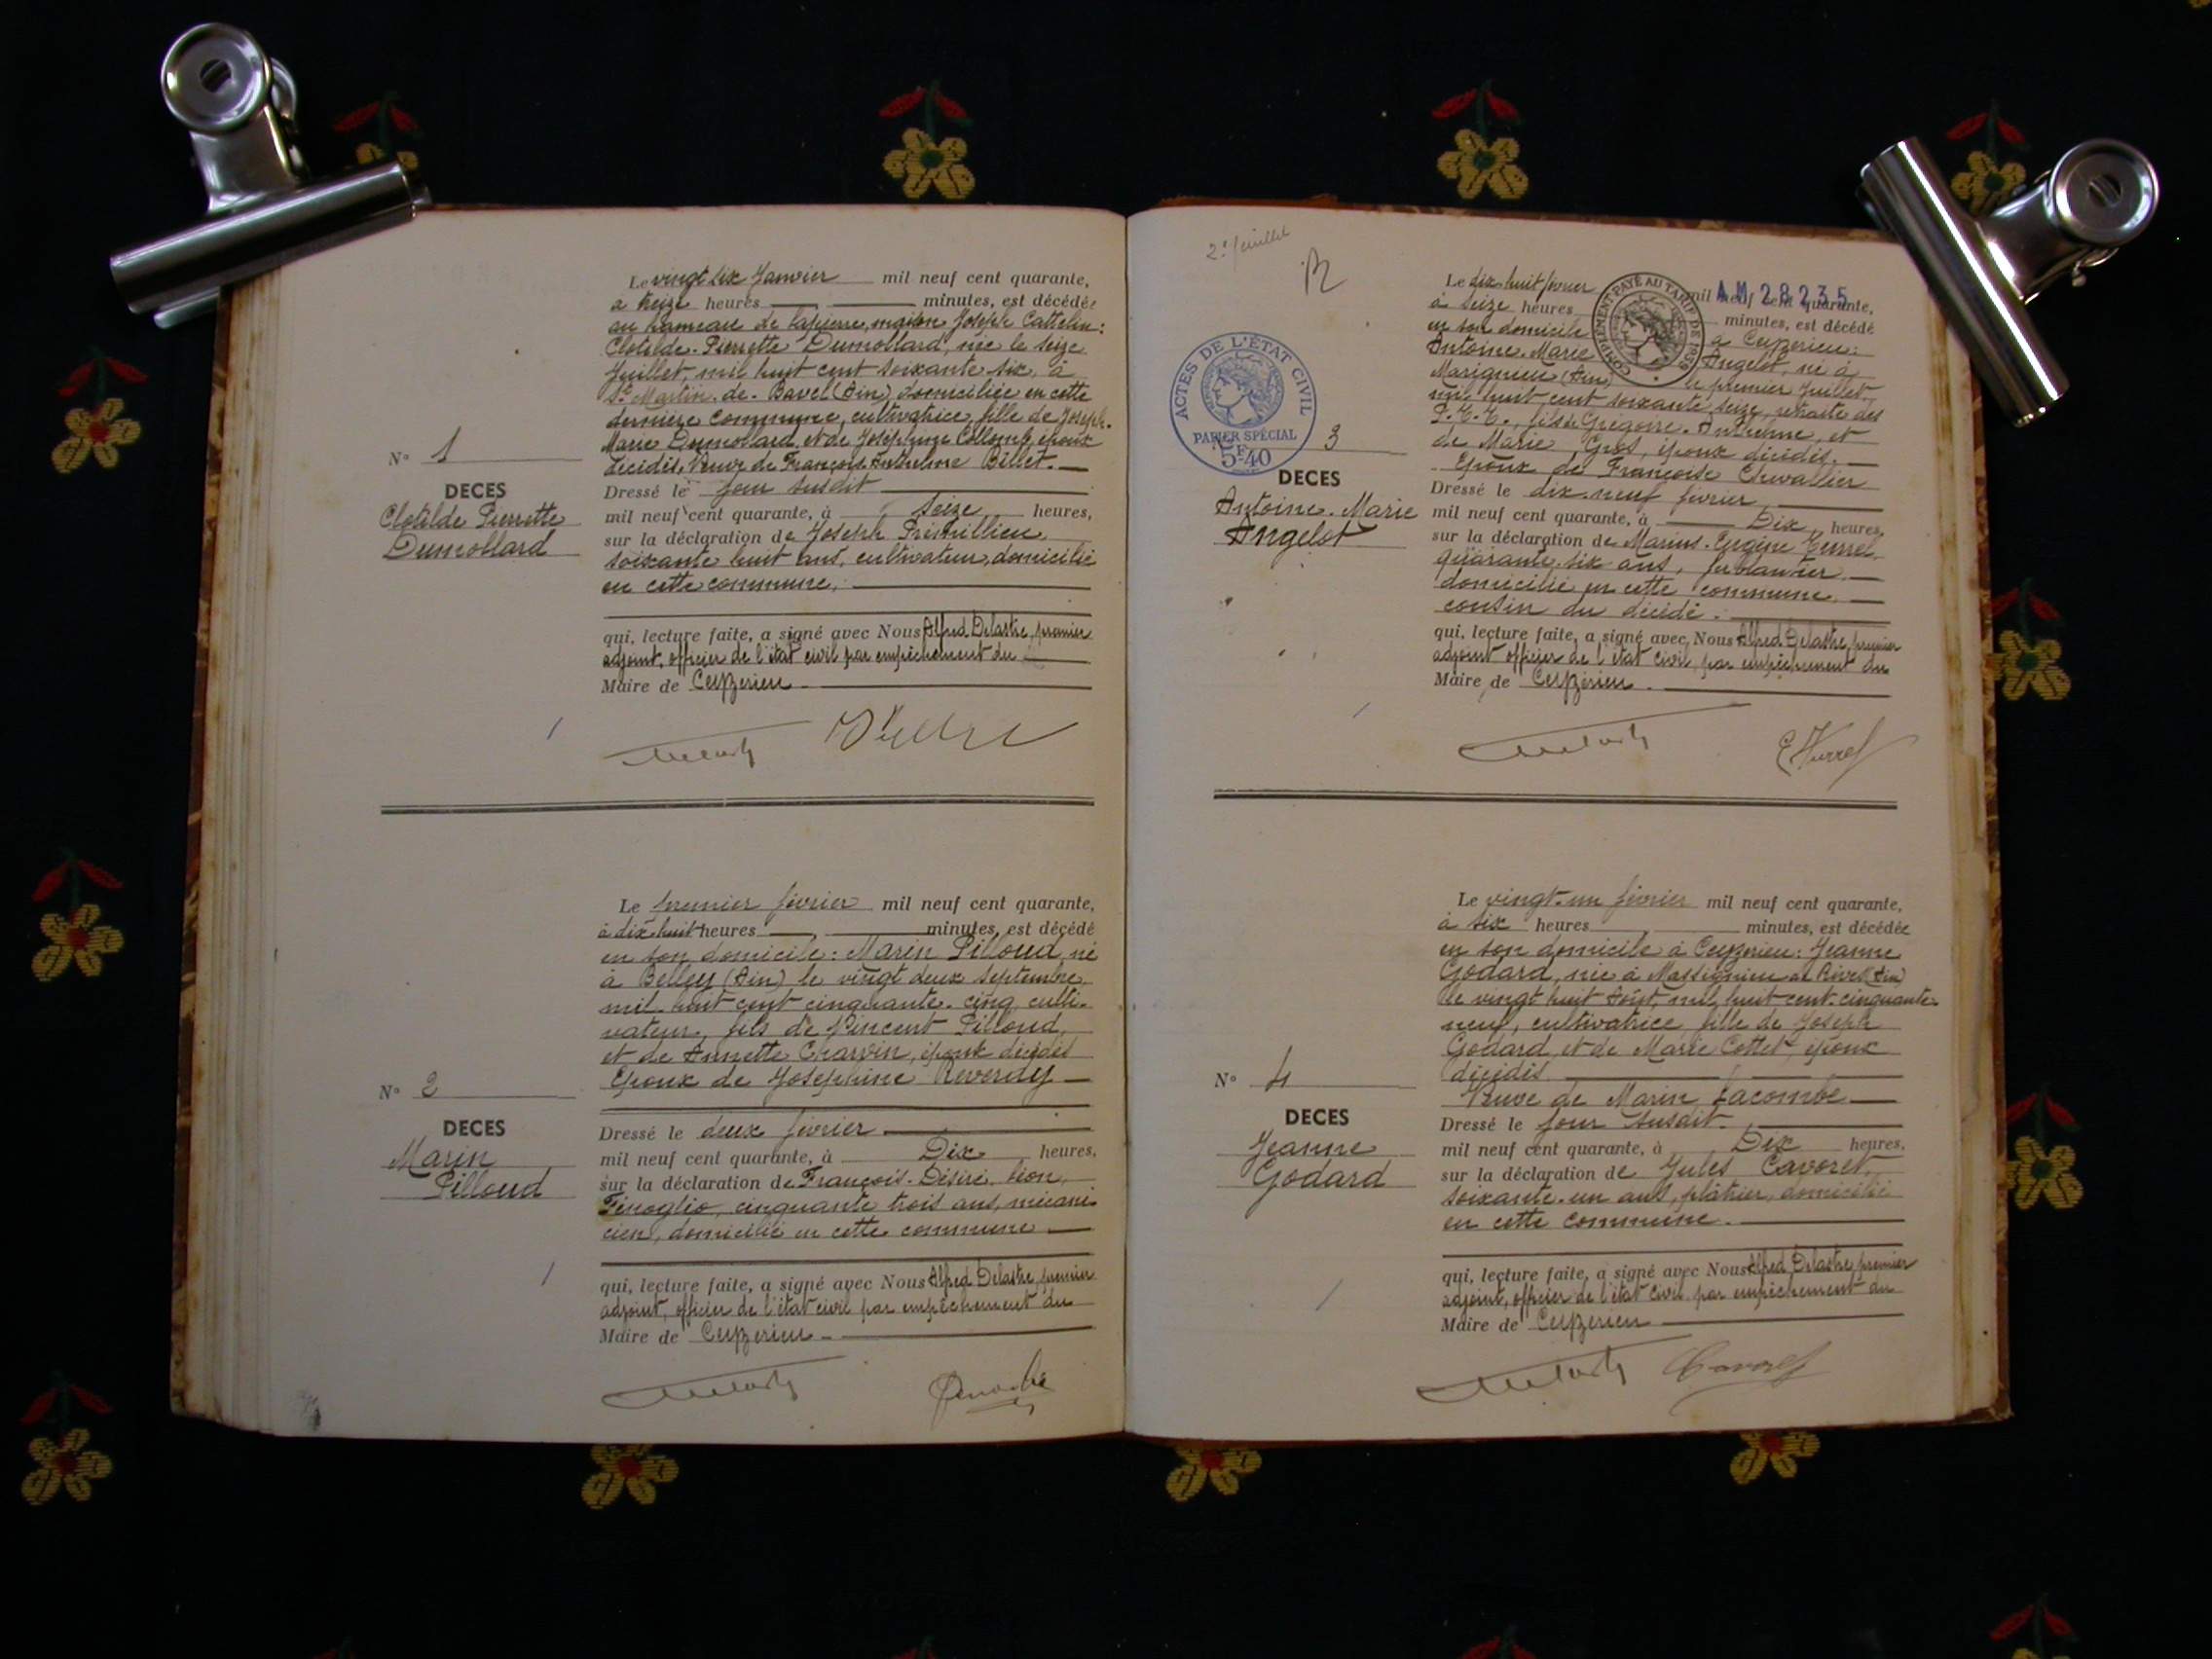 Le vingt six Janvier mil neuf cent quarante,
à treize heures minutes, est décédée
au hameau de Lapierre, maison Joseph Cattelin:
Clotilde-Pierrette Dumollard, née le seize
Juillet, mil huit cent soixante six, à
St Martin-de-Bavel (Ain) domiciliée en cette
dernière commune, cultivatrice, fille de Joseph-
Marie Dumollard, et de Joséphine Collomb, époux
décédés, Veuve de François Anthelme Billet.
N° 1
DECES
Clotilde Pierrette
Dumollard
Dressé le jour susdit
mil neuf cent quarante, à seize heures,
sur la déclaration de Joseph
soixante huit ans, cultivateur, domicilié
en cette commune,
qui, lecture faite, a signé avec Nous Alfred Delastre, premier
adjoint, officier de l'état civil par empêchement du
Maire de Ceyzerieu
Le premier février mil neuf cent quarante,
à dix huit heures minutes, est décédé
en son domicile: Marin Pilloud, né
à Belley (Ain) le vingt deux septembre
mil huit cent cinquante-cinq, culti-
vateur, fils de Vincent Pilloud,
et de Annette Charvin, époux décédés
Epoux de Joséphine Reverdy
N° 2
DECES
Marin
Pilloud
Dressé le deux février
mil neuf cent quarante, à Dix heures,
sur la déclaration de François-Désiré-Léon
Finoglio, cinquante trois ans, mécani-
cien, domicilié en cette commune
qui, lecture faite, a signé avec Nous Alfred Delastre, premier
adjoint, officier de l'état civil par empêchement du
Maire de Ceyzerieu
2e feuillet
Le dix huit février mil neuf cent quarante,
AM 28235
à seize heures minutes, est décédé
en son domicile à Ceyzerieu:
Antoine-Marie Angelot, né à
Marignieu (Ain) le premier Juillet,
mil huit cent soixante seize, retraité des
P.T.T., fils de Grégoire-Anthelme, et
de Marie Gros, époux décédés.
Epoux de Françoise Chevalier
COMPLÉMENT PAYÉ AU TARIF DE 1938
ACTES DE L'ÉTAT CIVIL
PAPIER SPÉCIAL
5F40
3
DECES
Antoine-Marie
Angelot
Dressé le dix-neuf février
mil neuf cent quarante, à Dix heures,
sur la déclaration de Marius-Eugène
quarante-six ans, ferblantier
domicilié en cette commune,
cousin du décédé.
qui, lecture faite, a signé avec Nous Alfred Delastre, premier
adjoint officier de l'état civil, par empêchement du
Maire de Ceyzerieu
Le vingt-un février mil neuf cent quarante,
à six heures minutes, est décédée
en son domicile à Ceyzerieu: Jeanne
Godard, née à Massignieu de Rives (Ain)
le vingt huit Août, mil huit cent cinquante-
neuf, cultivatrice fille de Joseph
Godard, et de Marie Cottet, époux
décédés
Veuve de Marin Lacombe
N° 4
DECES
Jeanne
Godard
Dressé le jour susdit.
mil neuf cent quarante, à Dix heures,
sur la déclaration de Jules Cavoret,
soixante-un ans, plâtrier, domicilié
en cette commune.
qui, lecture faite, a signé avec Nous Alfred Delastre, premier
adjoint, officier de l'état civil par empêchement du
Maire de Ceyzerieu
Cavoret